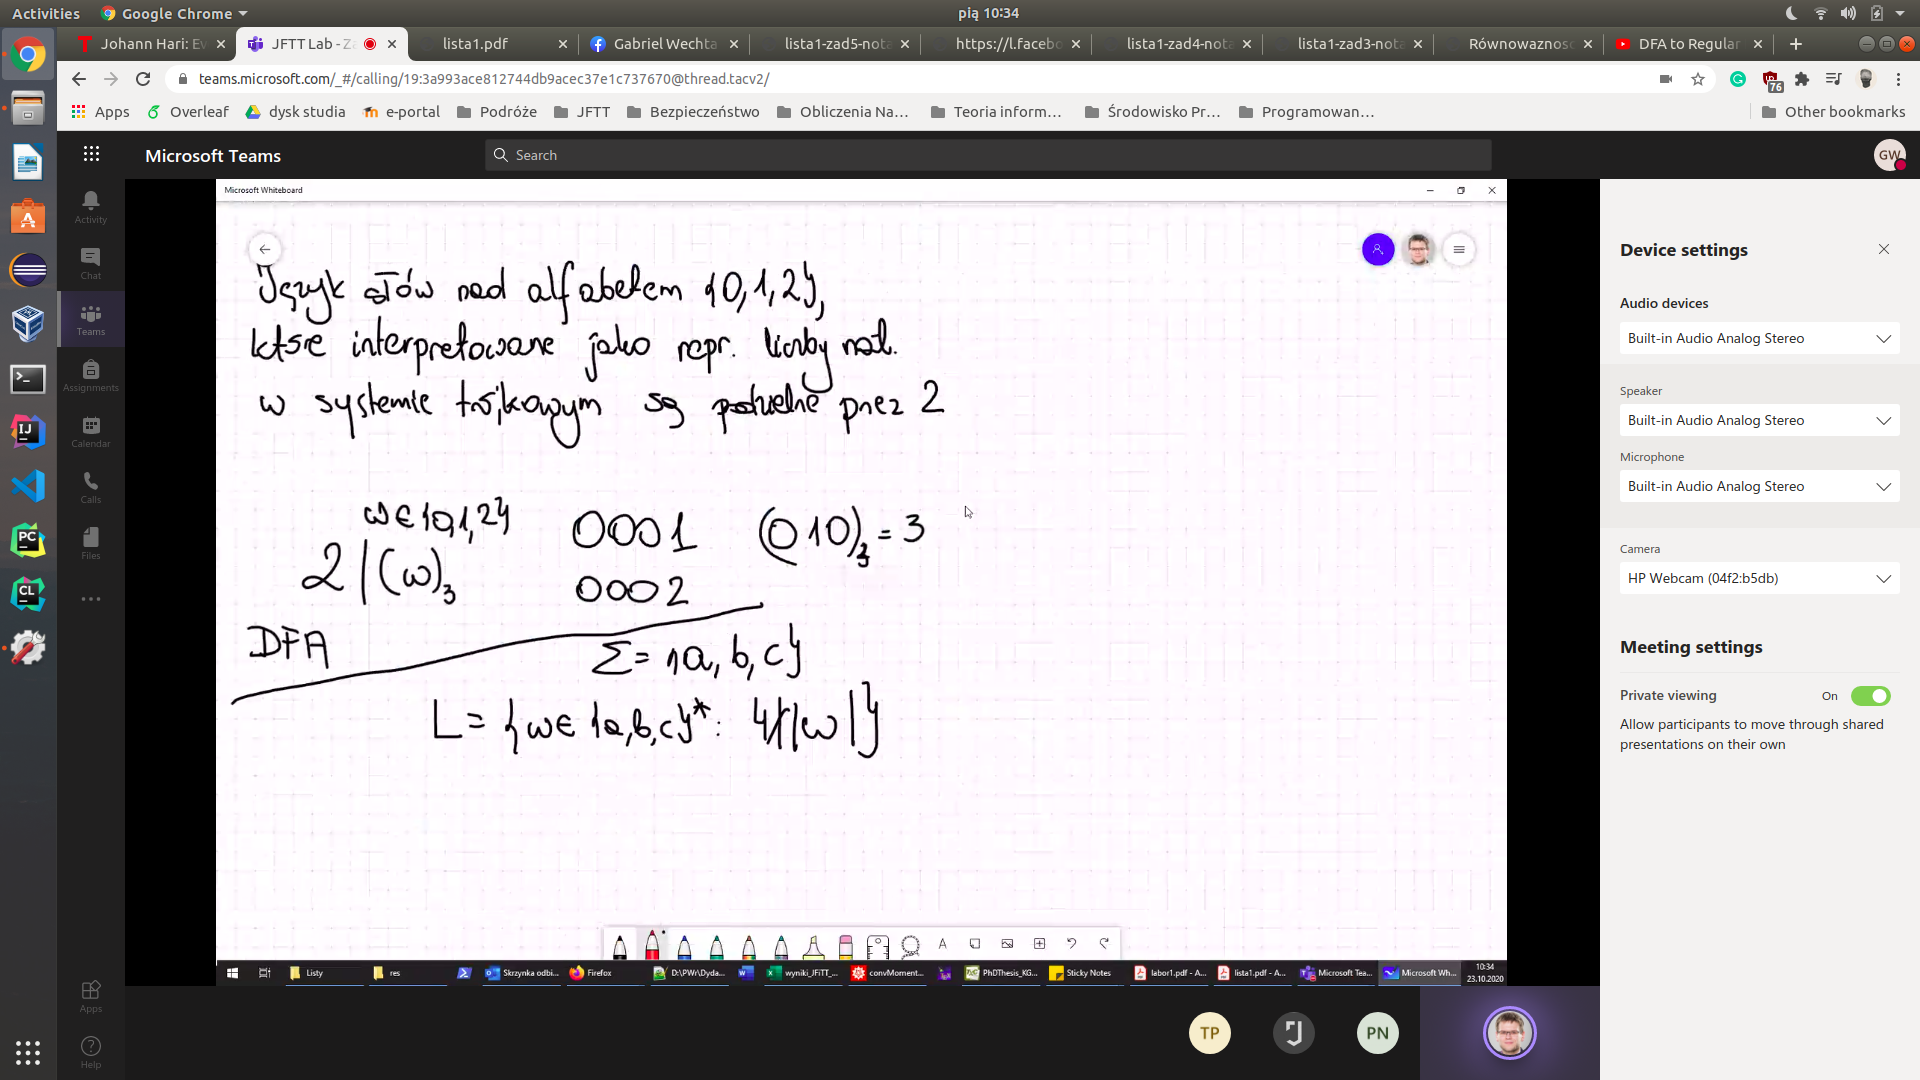 Activities
Google Chrome
pią 10:34
Johann Hari: Ev
JFTT Lab - Za
lista1.pdf
Gabriel Wechta
lista1-zad5-nota
https://l.facebo
lista1-zad4-nota
lista1-zad3-nota
Równowaznosc
DFA to Regular
teams.microsoft.com/_#/calling/19:3a993ace812744db9acec37e1c737670@thread.tacv2/
76
Apps
Overleaf
dysk studia
e-portal
Podróże
JFTT
Bezpieczeństwo
Obliczenia Na...
Teoria inform...
Środowisko Pr...
Programowan...
Other bookmarks
Microsoft Teams
Search
GW
Activity
Chat
Teams
Assignments
Calendar
Calls
Files
Apps
Help
Microsoft Whiteboard
Język słów nad alfabetem {0,1,2},
które interpretowane jako repr. liczby nat.
w systemie trójkowym są podzielne przez 2
w ∈ {0,1,2}
2 | (w)₃
0001
0002
(010)₃ = 3
DFA
Σ = {a, b, c}
L = {w ∈ {a,b,c}* : 4∤|w|}
Listy
res
Skrzynka odbi...
Firefox
D:\PWr\Dyda...
wyniki_JFiTT_...
convMoment...
PhDThesis_KG...
Sticky Notes
labor1.pdf - A...
lista1.pdf - A...
Microsoft Tea...
Microsoft Wh...
10:34
23.10.2020
TP
PN
Device settings
Audio devices
Built-in Audio Analog Stereo
Speaker
Built-in Audio Analog Stereo
Microphone
Built-in Audio Analog Stereo
Camera
HP Webcam (04f2:b5db)
Meeting settings
Private viewing
On
Allow participants to move through shared
presentations on their own